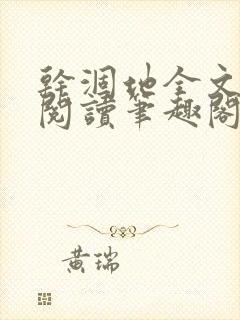 幹涸地全文
閱讀筆趣閣
黄瑞